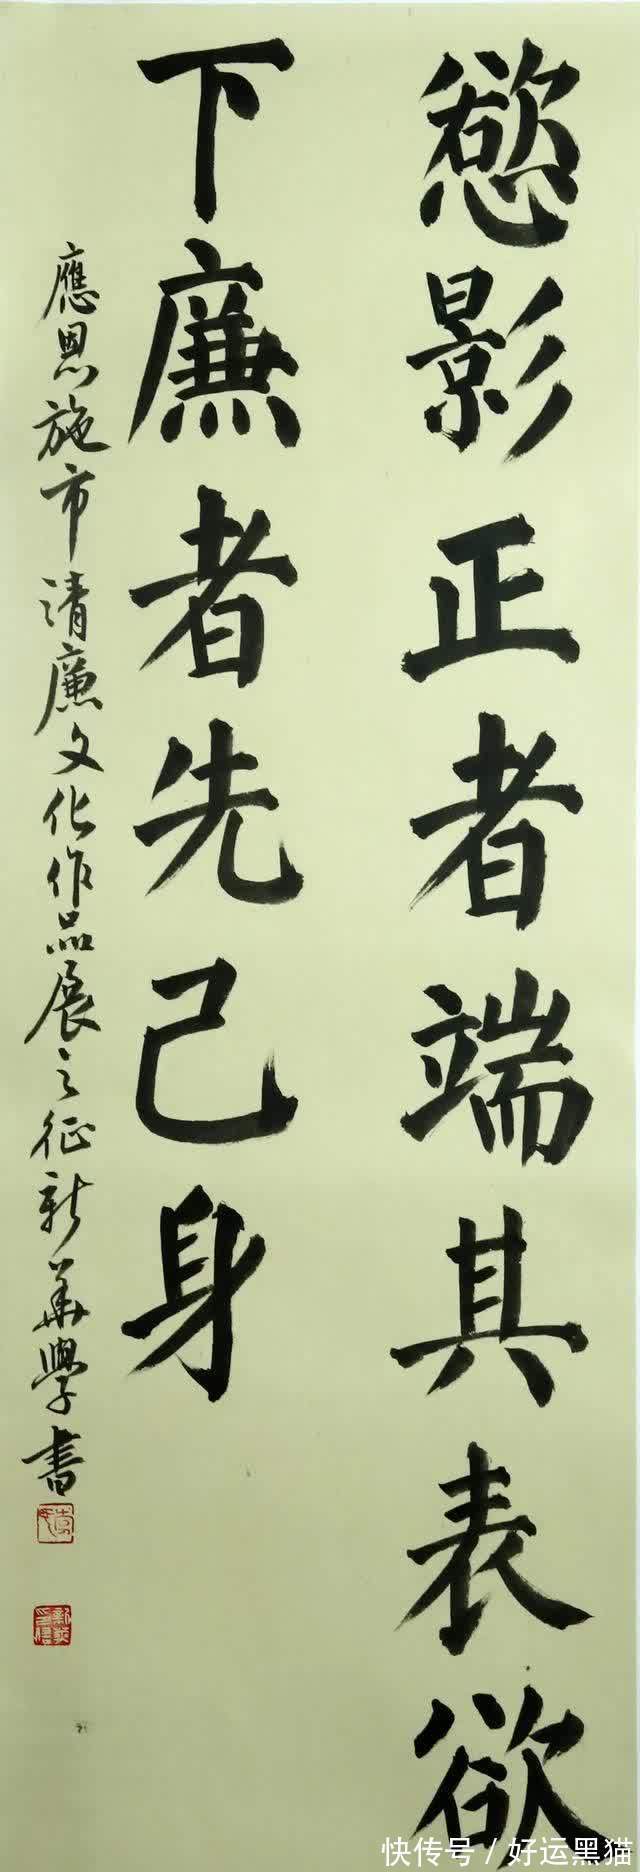 慾影正者端其表欲
下廉者先己身
應恩施市清廉文化作品展之征新華學書
快传号/好运黑猫